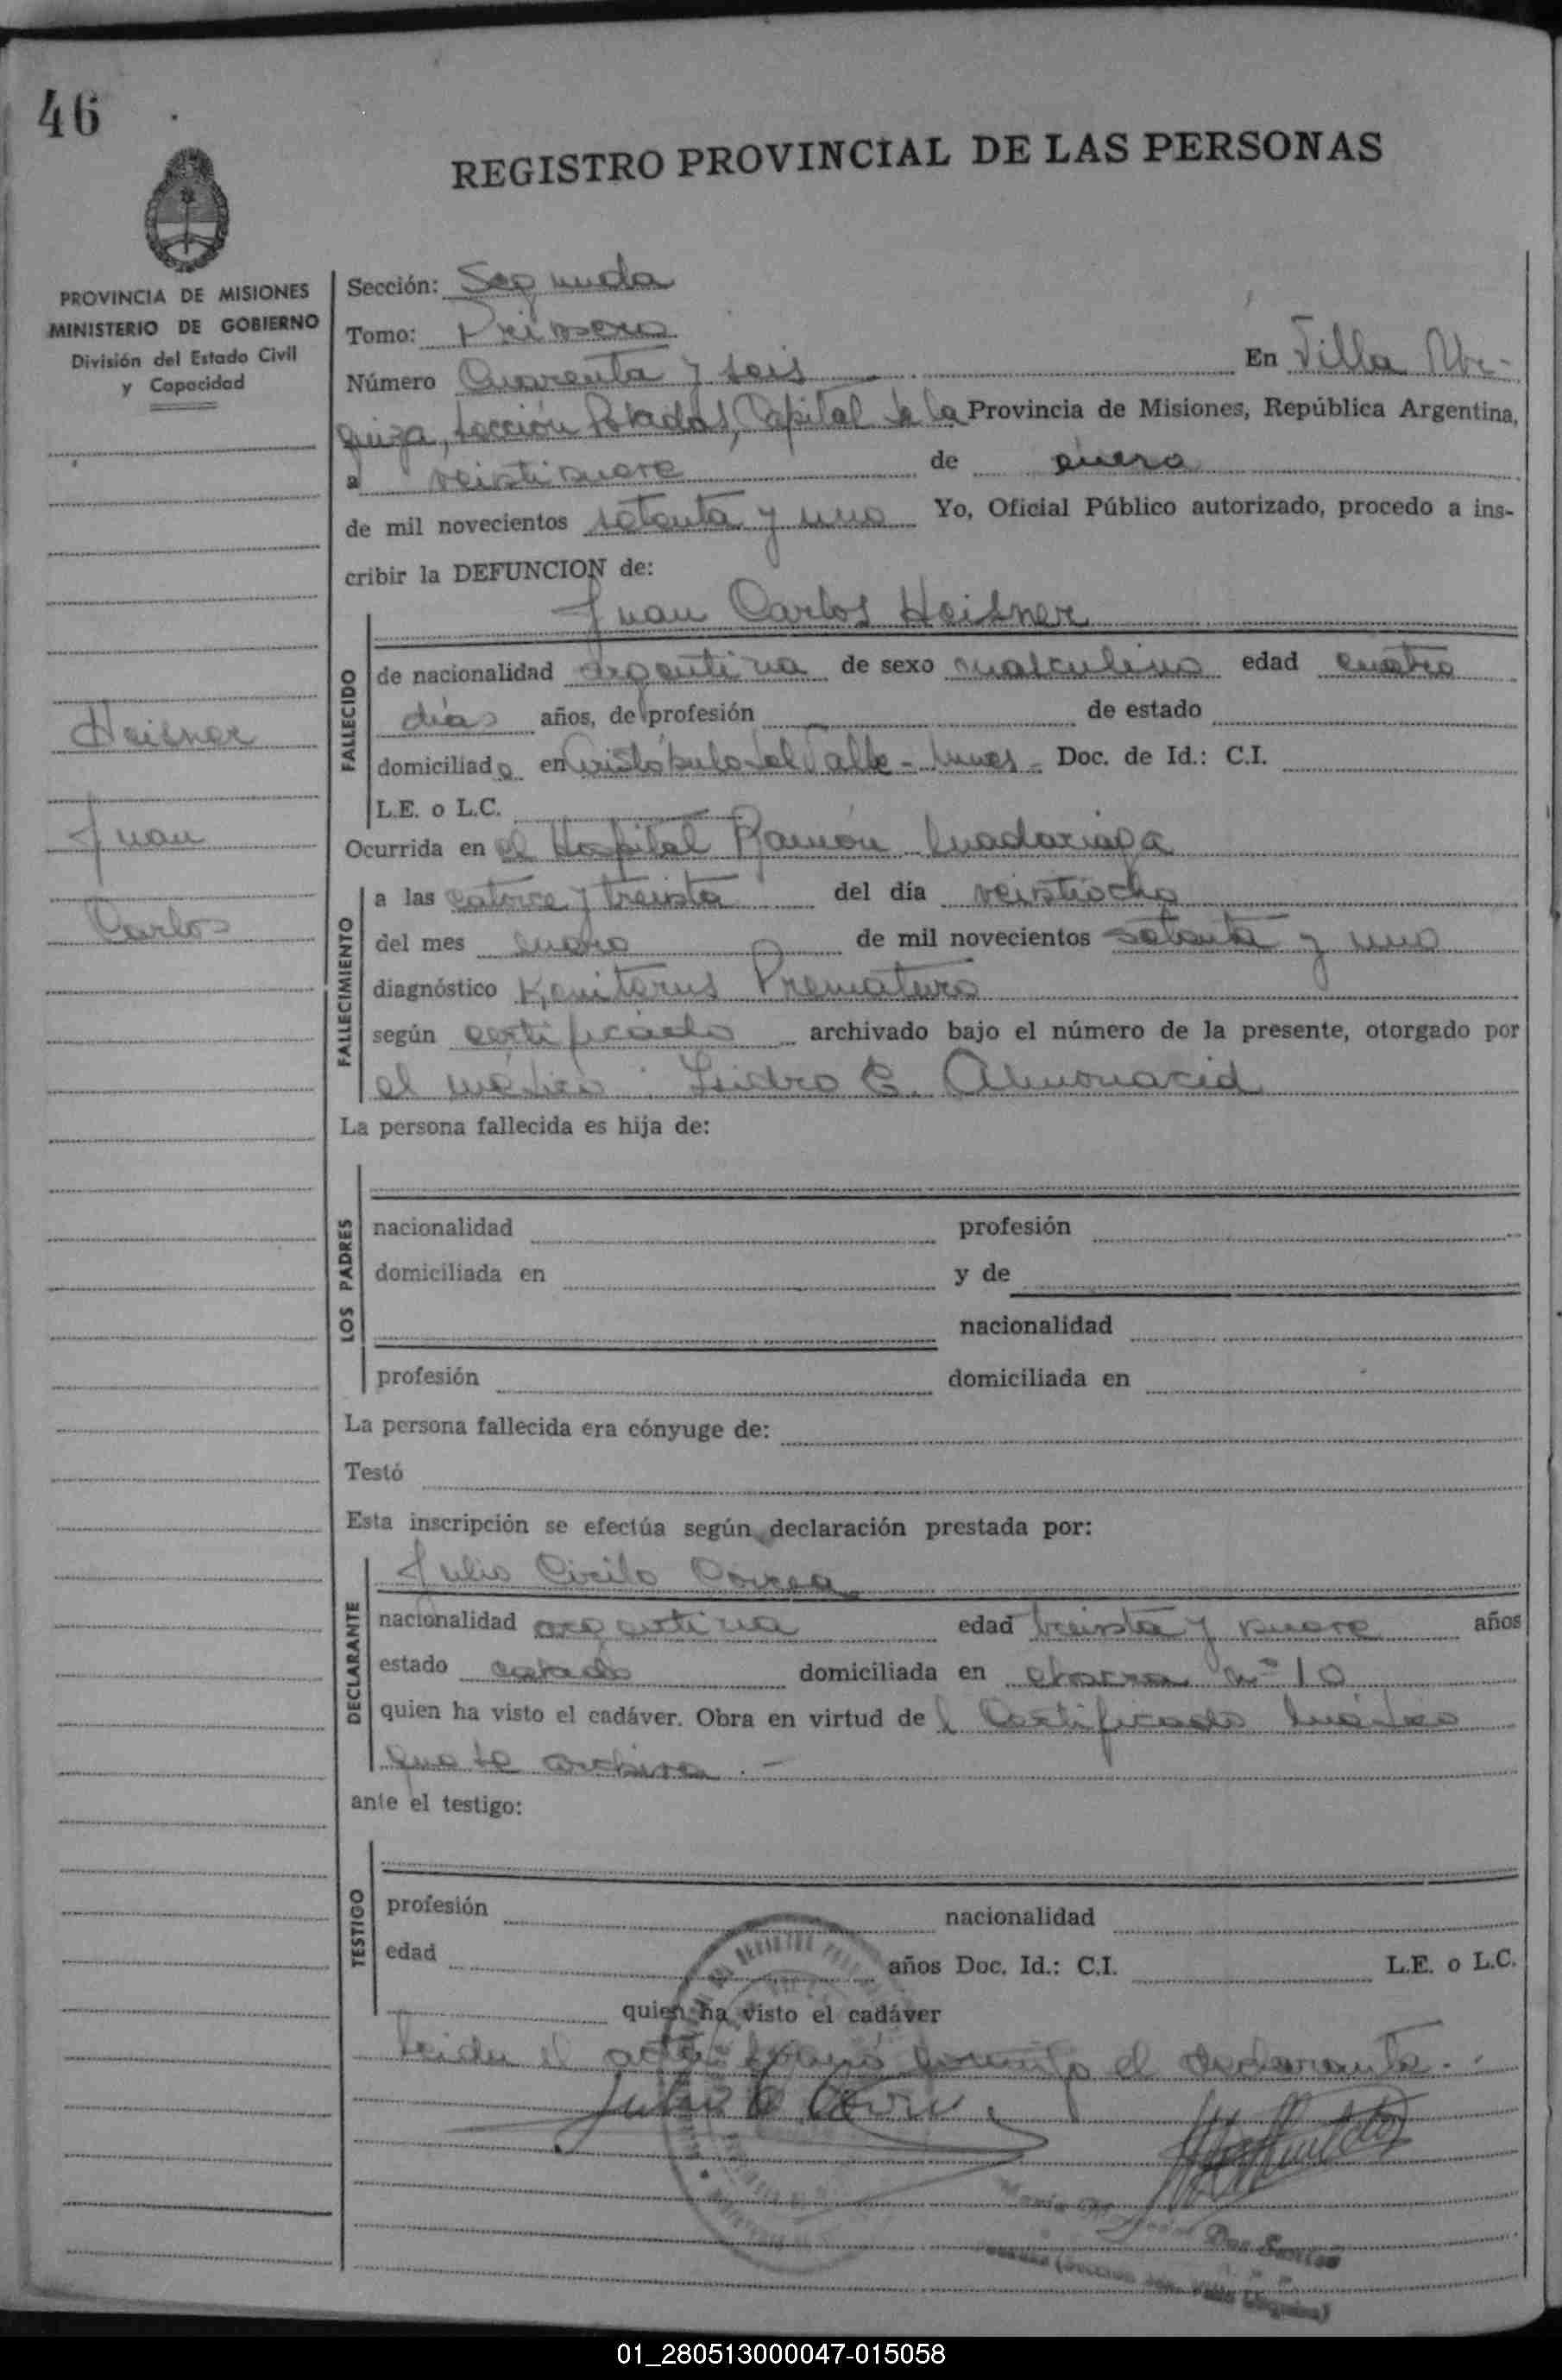 46
REGISTRO PROVINCIAL DE LAS PERSONAS
PROVINCIA DE MISIONES
MINISTERIO DE GOBIERNO
División del Estado Civil
y Capacidad
Sección: Segunda
Tomo: Primero
Número Cuarenta y seis En Villa Ur-
quiza, Sección Posadas, Capital de la Provincia de Misiones, República Argentina,
a veintinueve de enero
de mil novecientos setenta y uno Yo, Oficial Público autorizado, procedo a ins-
cribir la DEFUNCION de:
Juan Carlos Heisner
FALLECIDO
de nacionalidad argentina de sexo masculino edad cuatro
días años, de profesión — de estado
domiciliado en Aristóbulo del Valle - Mnes - Doc. de Id.: C.I.
L.E. o L.C.
Heisner
Juan
Carlos
Ocurrida en el Hospital Ramón Madariaga
FALLECIMIENTO
a las catorce y treinta del día veintiocho
del mes enero de mil novecientos setenta y uno
diagnóstico Prematuro
según certificado archivado bajo el número de la presente, otorgado por
el médico: Isidro C. Almonacid
La persona fallecida es hija de:
LOS PADRES
nacionalidad profesión
domiciliada en y de
nacionalidad
profesión domiciliada en
La persona fallecida era cónyuge de:
Testó
Esta inscripción se efectúa según declaración prestada por:
DECLARANTE
Julio Cirilo Correa
nacionalidad argentina edad treinta y nueve años
estado casado domiciliada en chacra n° 10
quien ha visto el cadáver. Obra en virtud del Certificado médico
que se archiva.-
ante el testigo:
TESTIGO
profesión nacionalidad
edad años Doc. Id.: C.I. L.E. o L.C.
quien ha visto el cadáver
Leida el acta firmó conmigo el declarante.
Julio C. Correa
Dos Santos
Villa Urquiza)
01_280513000047-015058